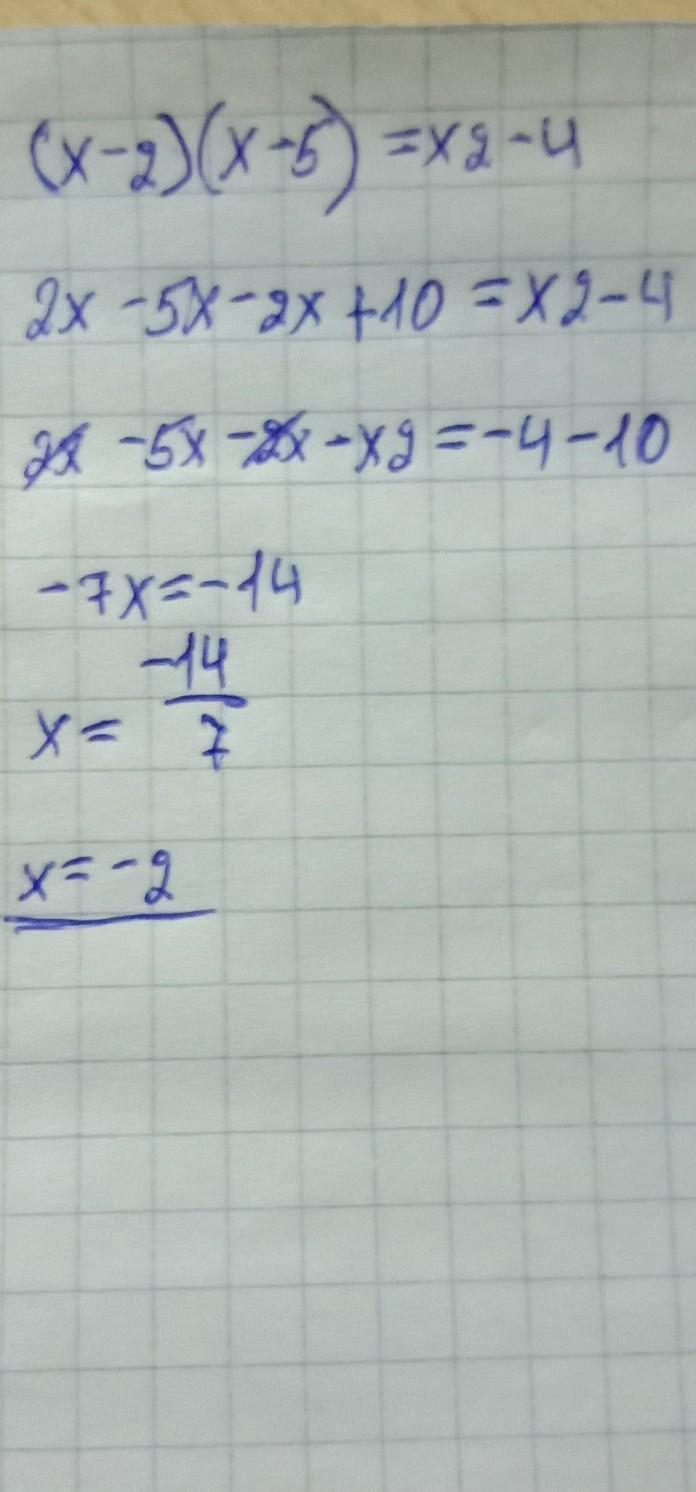 (x-2)(x-5) = x2-4
2x -5x-2x+10 = x2-4
2x -5x-2x-x2=-4-10
-7x=-14
x= -14/7
x=-2